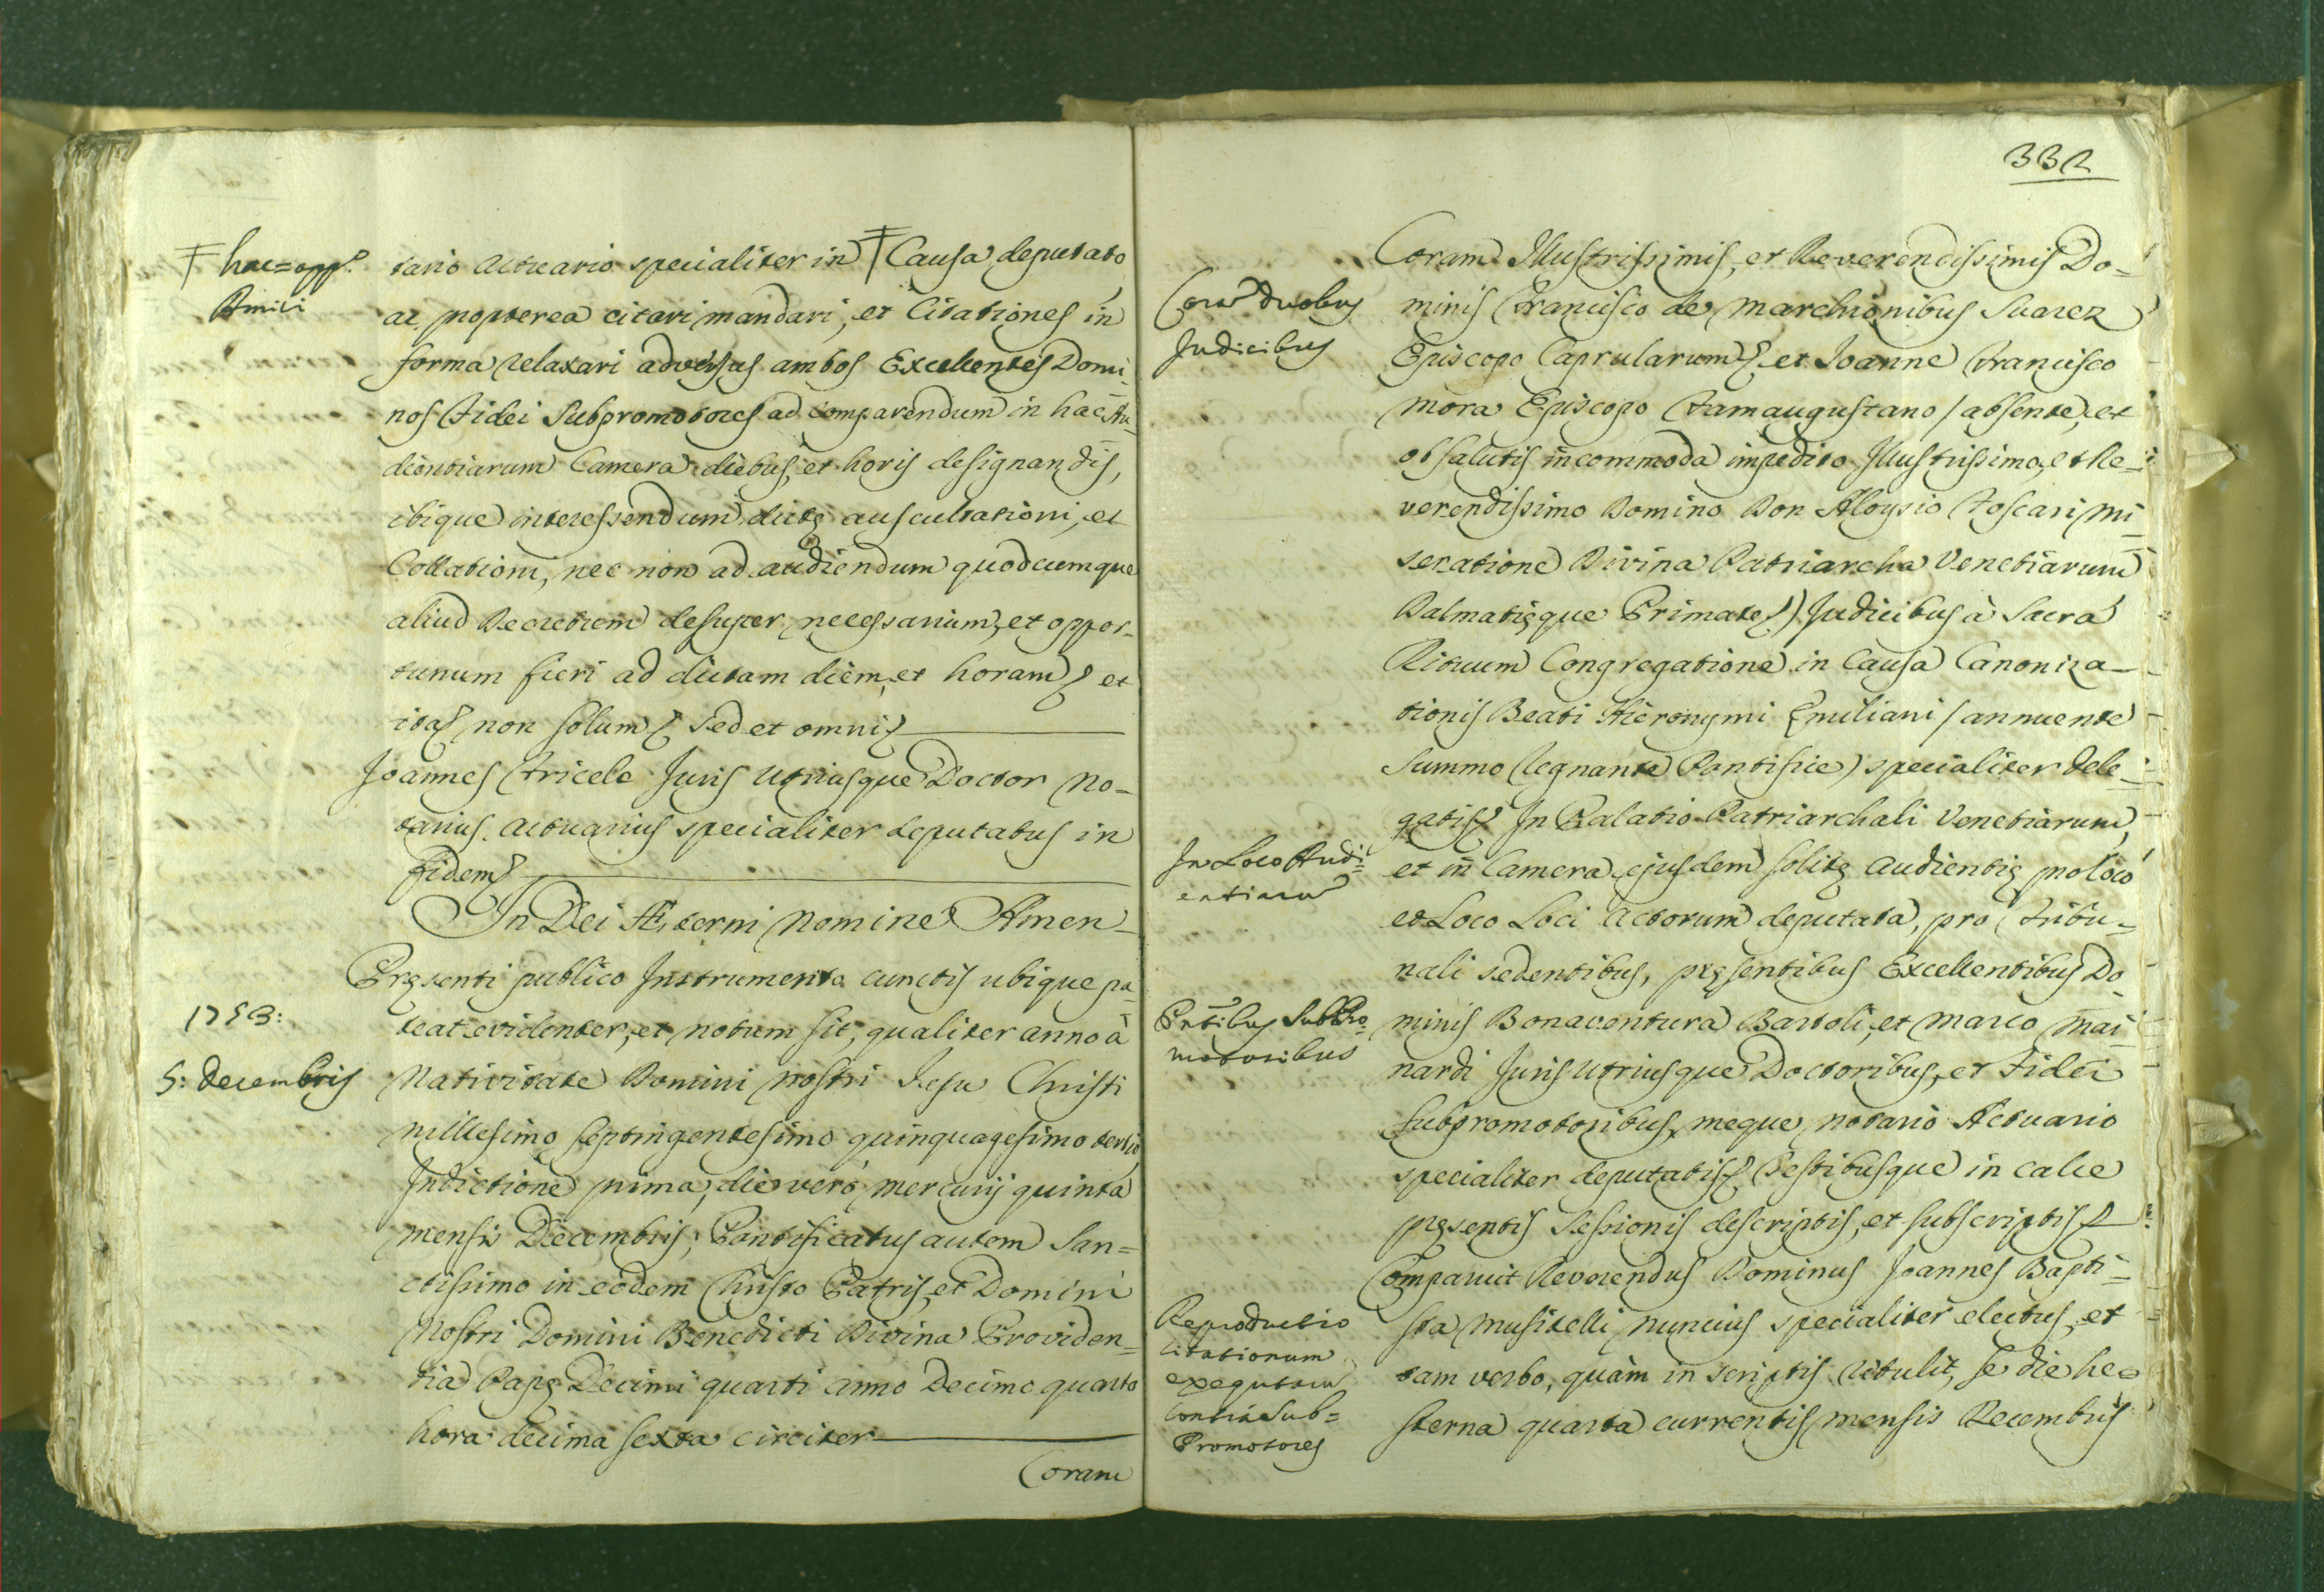 ‡ hac = app.ᵗ
Amici
tario Actuario specialiter in ‡ Causa deputato
ac propterea citari mandari, et Citationes in
forma relaxari adversus ambos Excellentes Domi-
nos Fidei Subpromotores ad comparendum in hac Au-
dientiarum Camera diebus, et horis designandis,
ibique interessendum dictę auscultationi, et
Collationi, nec non ad audiendum quodcumque
aliud Decretum desuper necessarium, et oppor-
tunum fieri ad dictam diem, et horam et
ita non solum sed et omni
Joannes Tricele Juris Utriusque Doctor No-
tarius Actuarius specialiter deputatus in
fidem
In Dei Æterni Nomine Amen
Pręsenti publico Instrumento cunctis ubique pa-
1753:
teat evidenter, et notum sit, qualiter anno à
5: Decembris
Nativitate Domini Nostri Jesu Christi
millesimo septingentesimo quinquagesimo tertio
Indictione prima, die verò Mercurij quinta
mensis Decembris, Pontificatus autem San=
ctissimo in eodem Christo Patris, et Domini
Nostri Domini Benedicti Divina Providen=
tia Papę Decimi quarti anno Decimo quarto
hora decima sexta circiter
Coram
332
Coram Illustrissimis, et Reverendissimis Do-
Corā duobus
Judicibus
minis Francisco de Marchionibus Suarez
Episcopo Caprularum et Joanne Francisco
Mora Episcopo Famaugustano / absente, et
ob salutis incommoda impedito Illustrissimo, et Re-
verendissimo Domino Don Aloysio Foscari Mi
seratione Divina Patriarcha Venetiarum
Dalmatięque Primate) Judicibus à Sacra
Rituum Congregatione in Causa Canoniza-
tionis Beati Hieronymi Emiliani / annuente
Summo Regnante Pontifice) specialiter dele-
gatis In Palatio Patriarchali Venetiarum,
In Loco Audi=
entiarū
et in Camera ejusdem solitę Audientię pro loco
et Loco Loci Actorum deputata, pro Tribu-
nali sedentibus, pręsentibus Excellentibus Do-
Pn̄tibus SubPro-
motoribus
minis Bonaventura Bartoli, et Marco Mai
nardi Juris Utriusque Doctoribus, et Fidei
Subpromotoribus, meque Notario Actuario
specialiter deputatis Testibusque in calce
pręsentis Sessionis descriptis, et subscriptis
Comparuit Reverendus Dominus Joannes Bapti=
Reproductio
Citationum
exequtarū
contra Sub=
Promotores
sta Musitelli nuncius specialiter electus, et
tam verbo, quàm in scriptis retulit, se die he=
sterna quarta currentis mensis Decembris